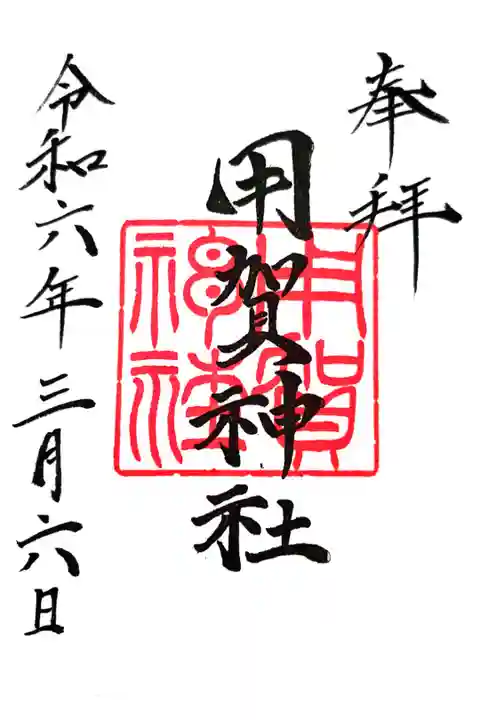 奉拝
用賀神社
用賀神社
令和六年三月六日